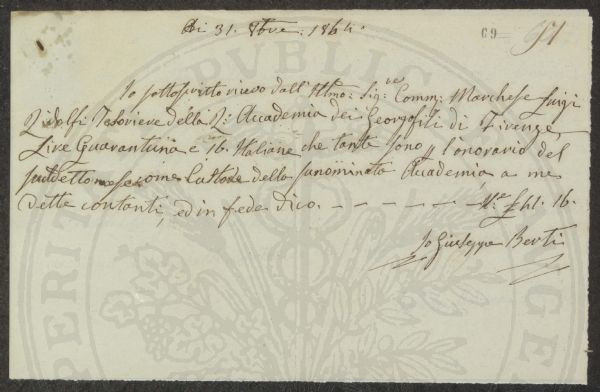 Di 31. 8bre. 1864.
69 91
Io sottoscritto ricevo dall' Illmo: Sig:re Comm: Marchese Luigi
Ridolfi Tesoriere della R: Accademia dei Georgofili di Firenze
Lire Quarantuna e 16. Italiane che tante sono l'onorario del
suddetto mese come Custode della sunominata Accademia, a me
dette contanti, ed in fede dico. - - - - - £ 41. 16.
Io Giuseppe Berti